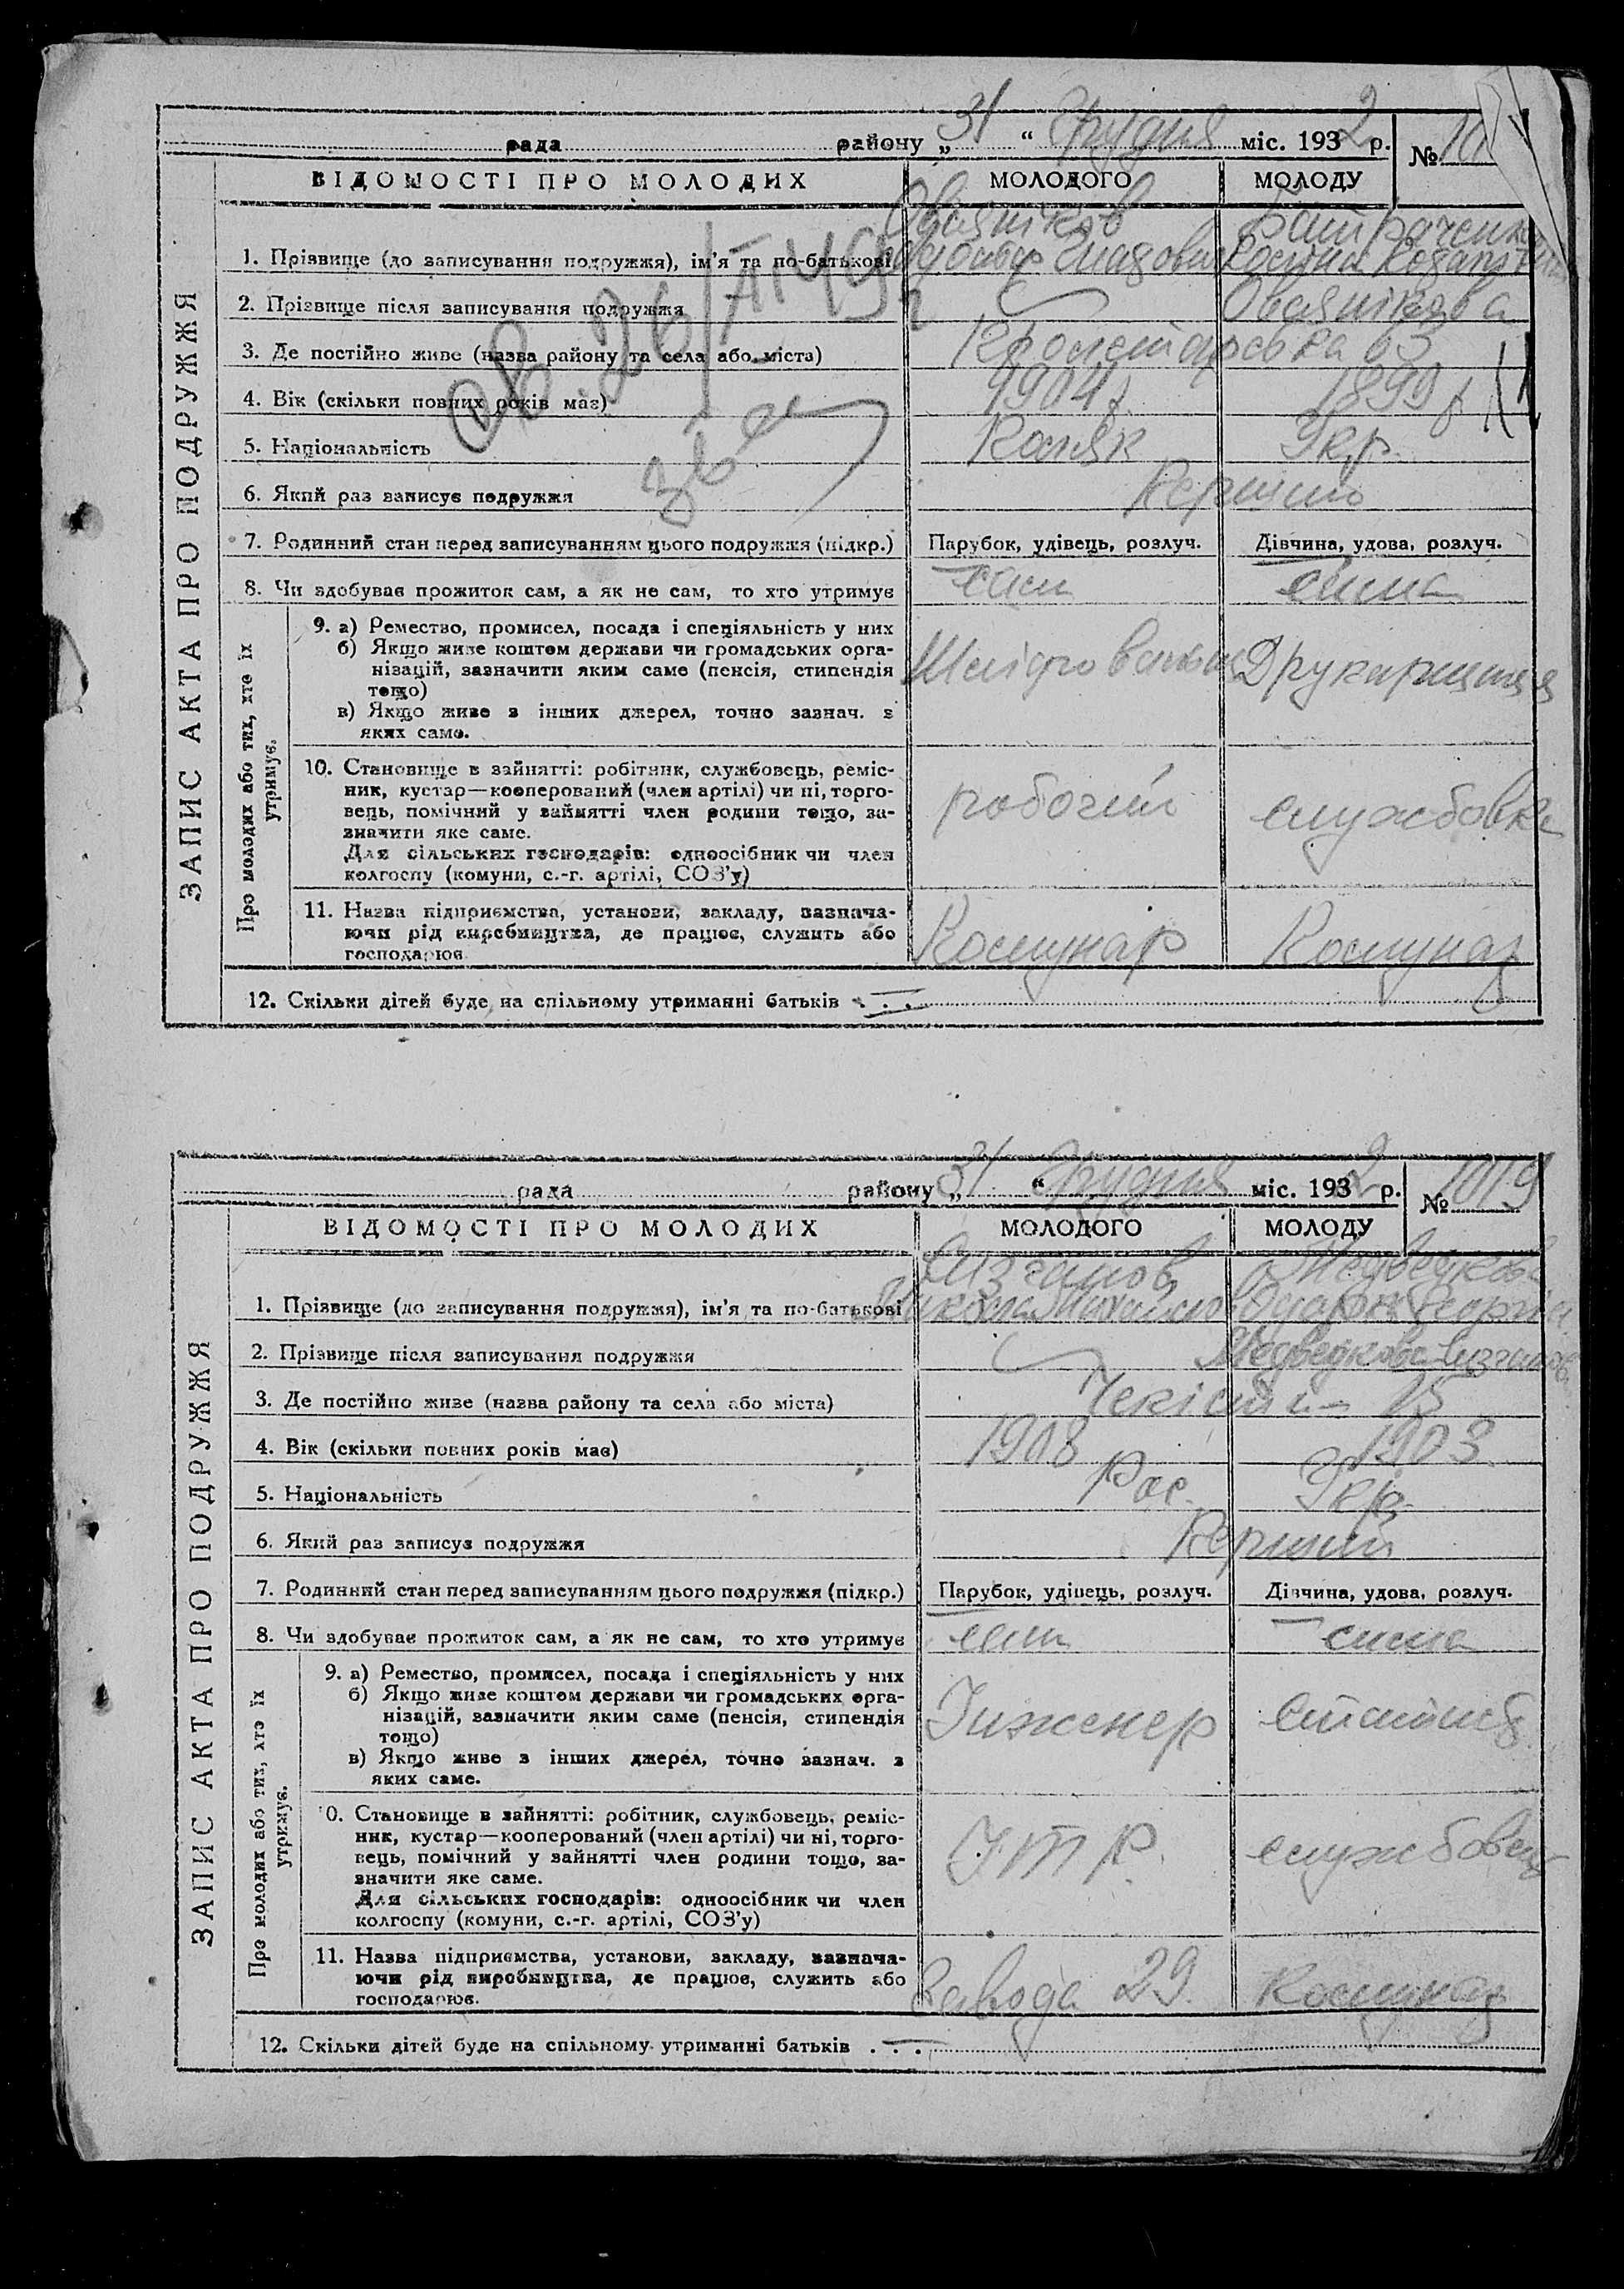 рада районУ „31“ Грудня міс. 1932 р. №
ВІДОМОСТІ ПРО МОЛОДИХ МОЛОДОГО МОЛОДУ
ЗАПИС АКТА ПРО ПОДРУЖЖЯ
1. Прізвище (до записування подружжя), ім'я та по-батькові
2. Прізвище після записування подружжя
3. Де постійно живе (назва району та села або міста) Пролетарська 63
4. Вік (скільки повних років має) 1904 р. 1899 р.
5. Національність Укр.
6. Який раз записує подружжя Перший
7. Родинний стан перед записуванням цього подружжя (підкр.) Парубок, удівець, розлуч. Дівчина, удова, розлуч.
8. Чи здобуває прожиток сам, а як не сам, то хто утримує сам сама
Про молодих або тих, хто їх утримує.
9. а) Ремество, промисел, посада і спеціяльність у них
б) Якщо живе коштом держави чи громадських орга-
нізацій, зазначити яким саме (пенсія, стипендія
тощо)
в) Якщо живе з інших джерел, точно зазнач. з
яких саме.
10. Становище в зайнятті: робітник, службовець, реміс-
ник, кустар—кооперований (член артілі) чи ні, торго-
вець, помічний у зайнятті член родини тощо, за-
значити яке саме.
Для сільських господарів: одноосібник чи член
колгоспу (комуни, с.-г. артілі, СОЗ'у)
робочий службовка
11. Назва підприємства, установи, закладу, зазнача-
ючи рід виробництва, де працює, служить або
господарює
Комунар Комунар
12. Скільки дітей буде на спільному утриманні батьків . . . —
рада району „31“ Грудня міс. 1932 р. № 1019
ВІДОМОСТІ ПРО МОЛОДИХ МОЛОДОГО МОЛОДУ
ЗАПИС АКТА ПРО ПОДРУЖЖЯ
1. Прізвище (до записування подружжя), ім'я та по-батькові
2. Прізвище після записування подружжя
3. Де постійно живе (назва району та села або міста) 15
4. Вік (скільки повних років має) 1908 1903.
5. Національність Рос. Укр.
6. Який раз записує подружжя Перший
7. Родинний стан перед записуванням цього подружжя (підкр.) Парубок, удівець, розлуч. Дівчина, удова, розлуч.
8. Чи здобуває прожиток сам, а як не сам, то хто утримує сам сама
Про молодих або тих, хто їх утримує.
9. а) Ремество, промисел, посада і спеціяльність у них
б) Якщо живе коштом держави чи громадських орга-
нізацій, зазначити яким саме (пенсія, стипендія
тощо)
в) Якщо живе з інших джерел, точно зазнач. з
яких саме.
Інженер
0. Становище в зайнятті: робітник, службовець, реміс-
ник, кустар—кооперований (член артілі) чи ні, торго-
вець, помічний у зайнятті член родини тощо, за-
значити яке саме.
Для сільських господарів: одноосібник чи член
колгоспу (комуни, с.-г. артілі, СОЗ'у)
ІТР. службовець
11. Назва підприємства, установи, закладу, зазнача-
ючи рід виробництва, де працює, служить або
господарює.
Завода 29. Комунар
12. Скільки дітей буде на спільному утриманні батьків . . . —